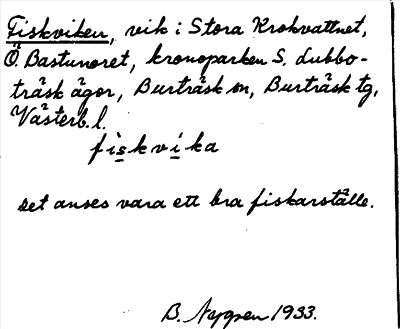 Fiskviken, vik i Stora Krokvattnet,
Ö Bastunoret, kronoparken S. Lubbo-
träsk ägor, Burträsk sn, Burträsk tg,
Västerb. l.
fiskvika
Det anses vara ett bra fiskarställe.
B. Nygren 1933.